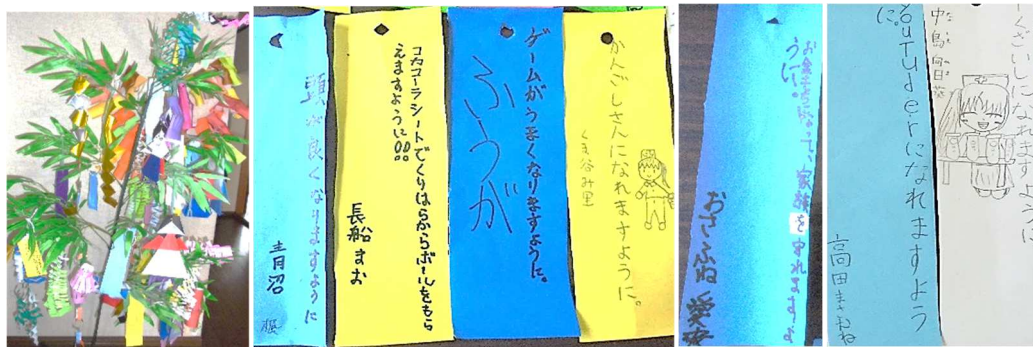 頭が良くなりますように
青沼
楓
コカコーラシートでくりはらからボールをもら
えますように!!
長船まお
ゲームがうまくなりますように。
ふうが
かんごしさんになれますように。
くま谷み里
お金持ちになって、家族を守れますよ
うに。
おさふね 愛
YouTuderになれますよう
に。
高田まさむね
くざいしになれますように
中島向日葵